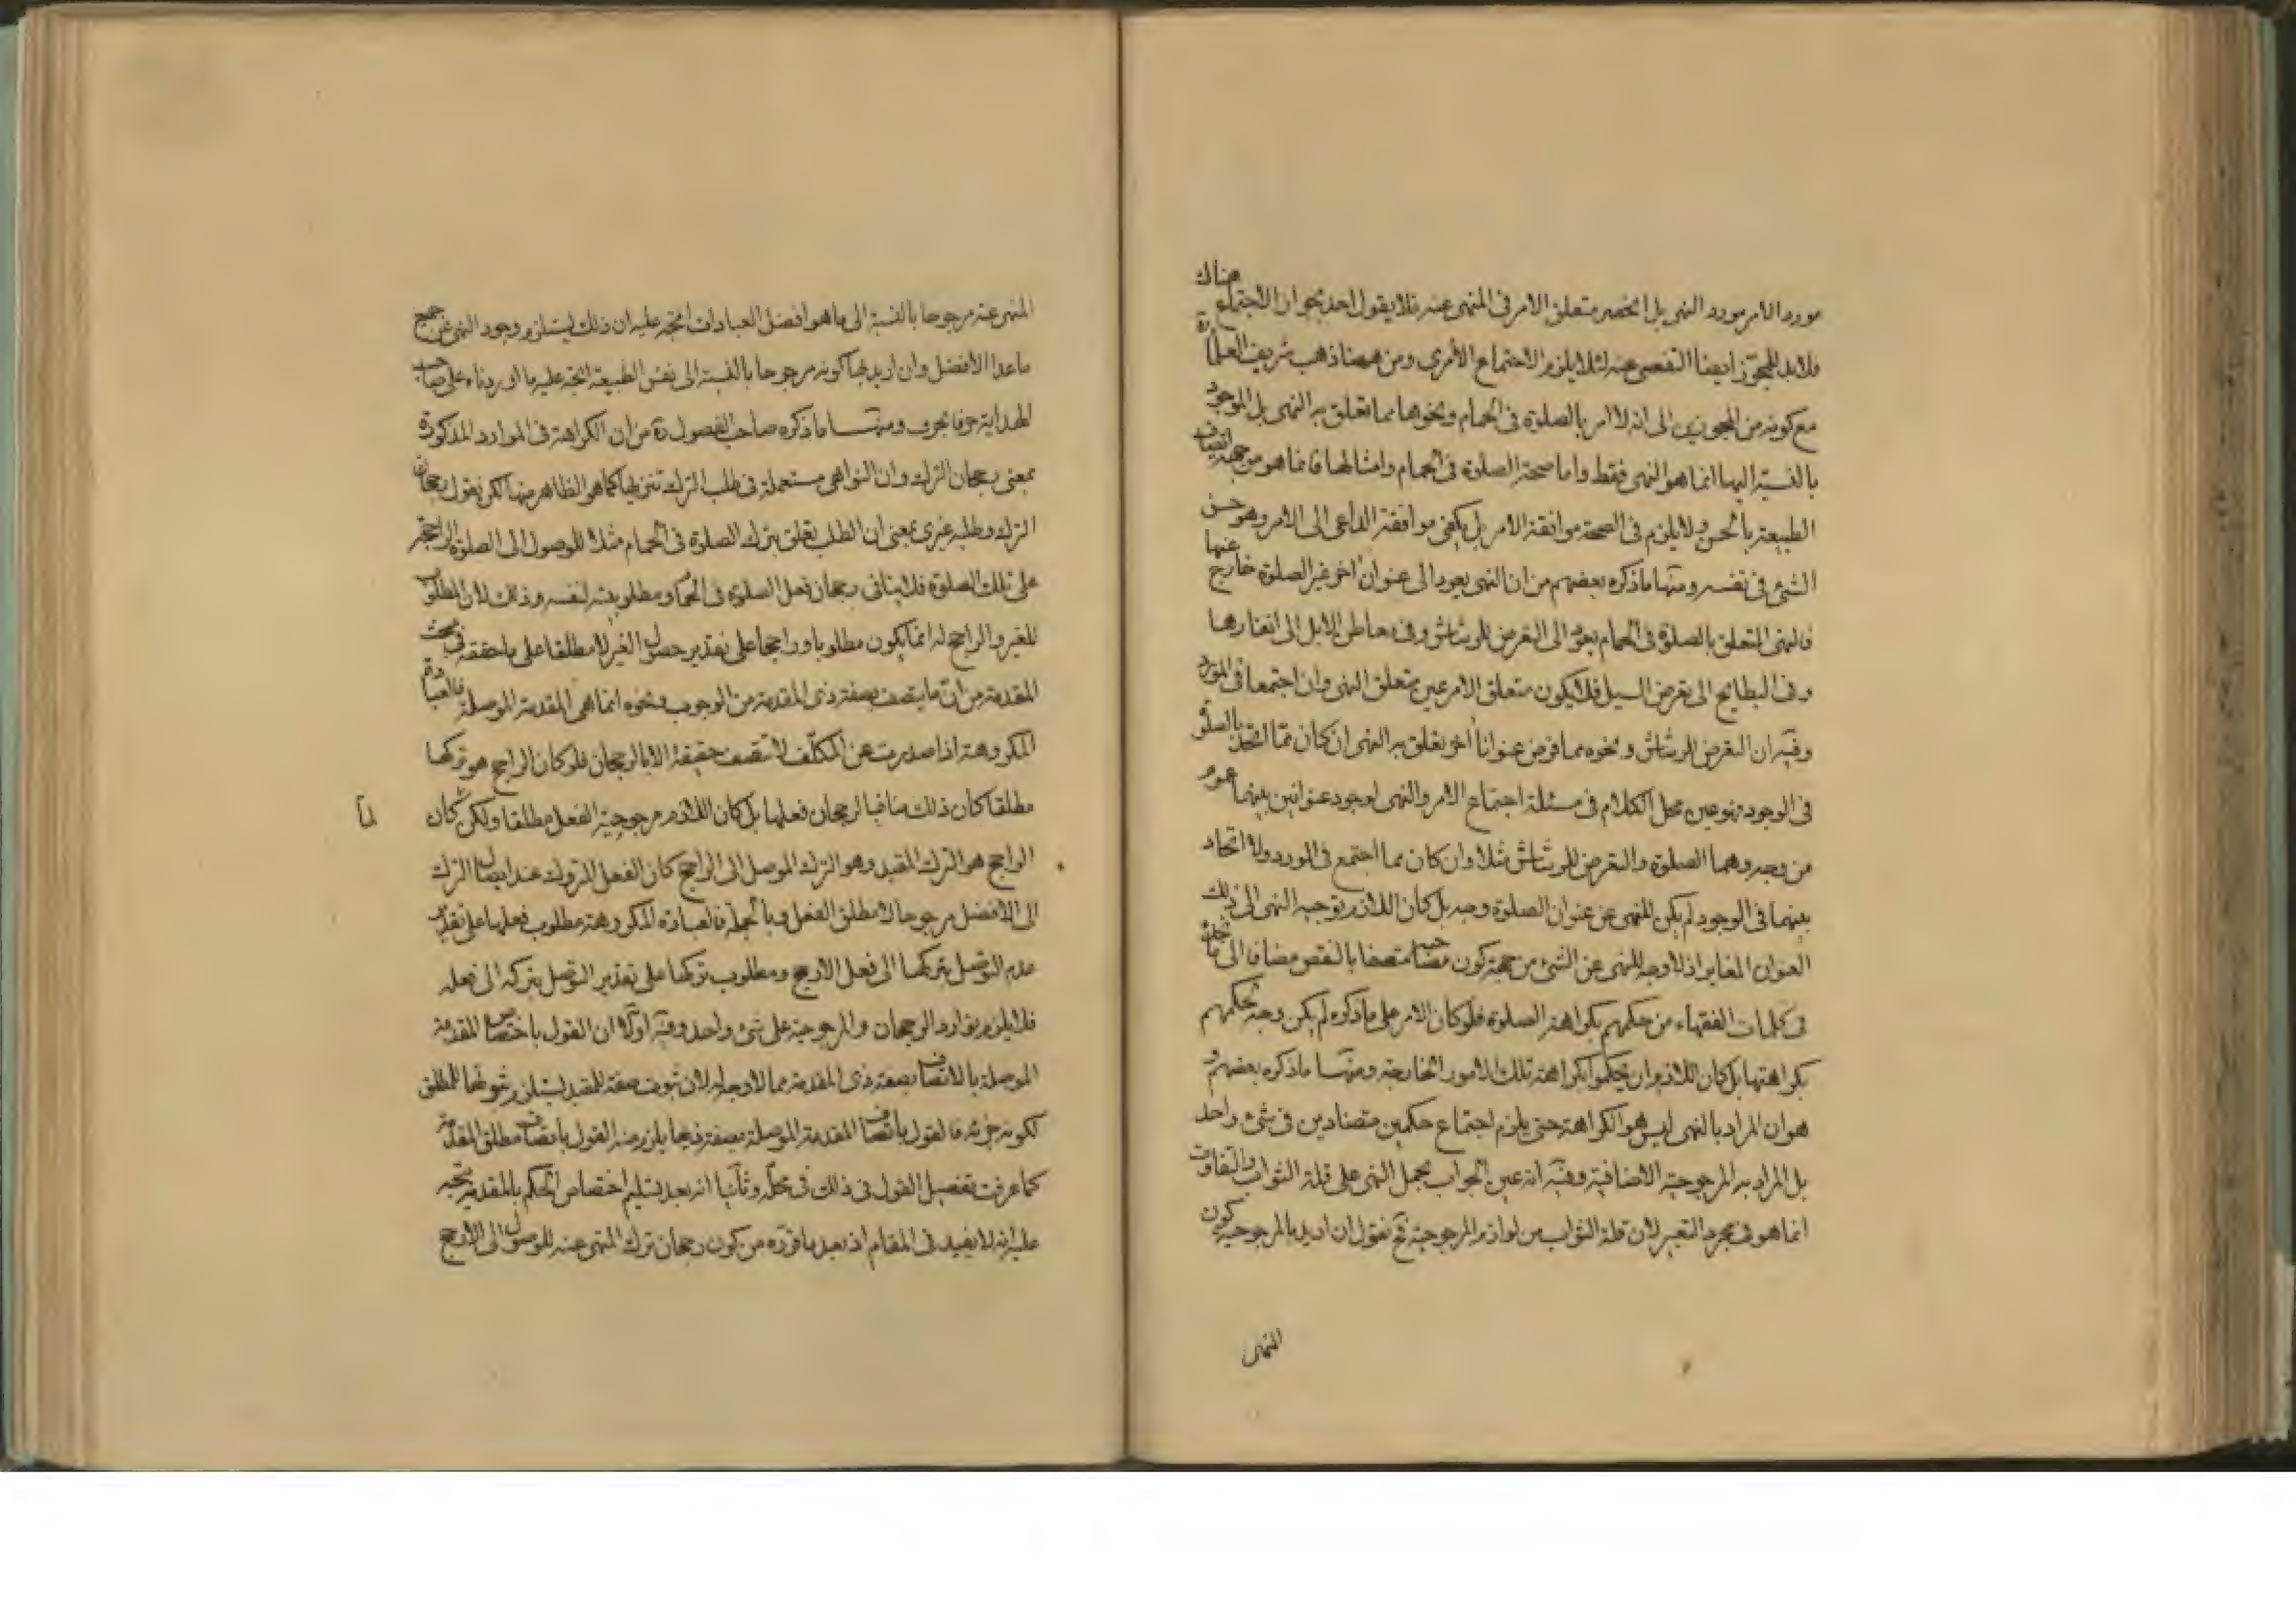 مورد الامر مورد النهى بل انحصر متعلق الامر فى المنهى عنه فلا يقول احد بجواز الاجتماع هناك
فلا بد للمجوّز ايضا التفصى عنه لئلا يلزم الاجتماع الأمرى ومن ههنا ذهب شريف العلماء ره
مع كونه من المجوزين الى انه لا امر بالصلوة فى الحمام ونحوها مما تعلق به النهى بل الموجود
بالنسبة اليها انما هو النهى فقط واما صحة الصلوة فى الحمام وامثالها فانما هو من جهة اتصاف
الطبيعة بالحسن ولا يلزم فى الصحة موافقة الامر بل يكفى موافقة الداعى الى الامر وهو حسن
الشئ فى نفسه ومنها ما ذكره بعضهم من ان النهى يعود الى عنوان اخر غير الصلوة خارج عنها
فالنهى المتعلق بالصلوة فى الحمام يعود الى التعرض للرشاش وفى معاطن الابل الى انفارها
وفى البطايح الى تعرض السيل فلا يكون متعلق الامر عين متعلق النهى وان اجتمعا فى المورد
وفيه ان التعرض للرشاش ونحوه مما فرض عنوانا اخر تعلق به النهى ان كان ممّا اتحد بالصلوة
فى الوجود فهو عين محل الكلام فى مسئلة اجتماع الامر والنهى لوجود عنوانين بينهما عموم
من وجه وهما الصلوة والتعرض للرشاش مثلا وان كان مما اجتمع فى المورد ولا اتحاد
بينهما فى الوجود لم يكن للنهى عن عنوان الصلوة وجه بل كان اللازم توجيه النهى الى ذلك
العنوان المغاير اذ لا وجه للنهى عن الشئ من جهة كون مصاحبه متصفا بالنقص مضافا الى ما تجده
فى كلمات الفقهاء من حكمهم بكراهة الصلوة فلو كان الامر على ما ذكره لم يكن وجه لحكمهم
بكراهتها بل كان اللازم ان يحكموا بكراهة تلك الامور الخارجة ومنها ما ذكره بعضهم و
هو ان المراد بالنهى ليس هو الكراهة حتى يلزم اجتماع حكمين متضادين فى شئ واحد
بل المراد به المرجوحية الاضافية وفيه انه عين الجواب بحمل النهى على قلة الثواب والتفاوت
انما هو فى مجرد التعبير لان قلة الثواب من لوازم المرجوحية ثم نقول ان اريد بالمرجوحية كون
المنهى
المنهى عنه مرجوحا بالنسبة الى ما هو افضل العبادات اتجه عليه ان ذلك يستلزم وجود النهى عن جميع
ما عدا الافضل وان اريد بها كونه مرجوحا بالنسبة الى نفس الطبيعة اتجه عليه ما اوردناه على صاحب
الهداية حرفا بحرف ومنها ما ذكره صاحب الفصول ره من ان الكراهة فى الموارد المذكورة
بمعنى رجحان الترك وان النواهى مستعملة فى طلب الترك تنزيها كما هو الظاهر منها لكن نقول رجحان
الترك وطلبه غيرى بمعنى ان الطلب تعلق بترك الصلوة فى الحمام مثلا للوصول الى الصلوة الراجحة
على تلك الصلوة فلا ينافى رجحان فعل الصلوة فى الحمام ومطلوبيته لنفسه وذلك لان المطلوب
للغير والراجح له انما يكون مطلوبا وراجحا على تقدير حصول الغير لا مطلقا على ما حققه فى مبحث
المقدمة من انّ ما يتصف بصفة ذى المقدمة من الوجوب ونحوه انما هى المقدمة الموصلة فالعبادة
المكروهة اذا صدرت عن المكلّف لا تتصف حقيقة الا بالرجحان فلو كان الراجح هو تركها
مطلقا كان ذلك منافيا لرجحان فعلها بل كان اللازم مرجوحية الفعل مطلقا ولكن كان
لما
الراجح هو الترك المقيد وهو الترك الموصل الى الراجح كان الفعل المتروك عند ايصال الترك
الى الافضل مرجوحا لا مطلق الفعل وبالجملة فالعبادة المكروهة مطلوب فعلها على تقدير
عدم التوصل بتركها الى فعل الارجح ومطلوب تركها على تقدير التوصل بتركه الى فعله
فلا يلزم توارد الرجحان والمرجوحية على شئ واحد وفيه اوّلا ان القول باختصاص المقدمة
الموصلة بالاتصاف بصفة ذى المقدمة مما لا وجه له لان ثبوت صفة للمقيد يستلزم ثبوتها للمطلق
لكونه جزئه فالقول باتصاف المقدمة الموصلة بصفة ذيها يلزمه القول باتصاف مطلق المقدمة
كما عرفت تفصيل القول فى ذلك فى محلّه وثانيا انه بعد تسليم اختصاص الحكم بالمقدمة يتجه
عليه انه لا يفيد فى المقام اذ بعد ما قرّره من كون رجحان ترك المنهى عنه للوصول الى الارجح